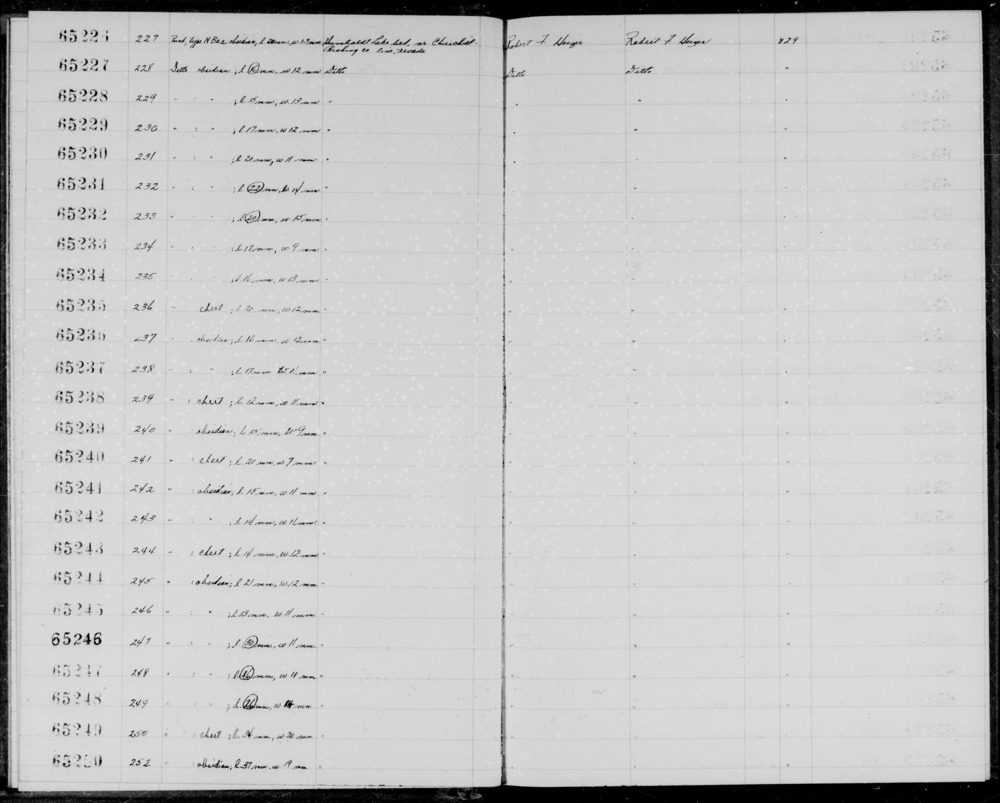 65226 227 Point, type NBa2 obsidian; l. mm, w 13 mm Humboldt Lake bed, nr Churchill- Robert F. Heizer Robert F. Heizer 829
Pershing co line, Nevada
65227 228 Ditto obsidian; l mm, w 12 mm Ditto Ditto Ditto "
65228 229 " : " ; l. 15 mm, w. 13 mm " " " "
65229 230 " : " ; l. 17 mm, w 12 mm " " " "
65230 231 " : " ; l. 21 mm, w 11 mm " " " "
65231 232 " : " ; l (22) mm, w 14 mm " " " "
65232 233 " : " ; l (20) mm, w 15 mm " " " "
65233 234 " : " ; l. 17 mm, w 9 mm " " " "
65234 235 " : " ; l. 16 mm, w 13 mm " " " "
65235 236 " chert ; l. 21 mm, w 12 mm " " " "
65236 237 " obsidian; l. 16 mm, w 12 mm " " " "
65237 238 " : " ; l. 17 mm w 11 mm " " " "
65238 239 " : chert ; l. 12 mm, w 11 mm " " " "
65239 240 " : obsidian; l. 15 mm, w 9 mm " " " "
65240 241 " : chert ; l. 21 mm, w 7 mm " " " "
65241 242 " : obsidian; l. 15 mm, w 11 mm " " " "
65242 243 " : " ; l. 14 mm, w 11 mm " " " "
65243 244 " : chert ; l. 14 mm, w 12 mm " " " "
65244 245 " : obsidian; l. 21 mm, w 12 mm " " " "
65245 246 " : " ; l. 13 mm, w 11 mm " " " "
65246 247 " : " ; l (30) mm, w 11 mm " " " "
65247 248 " : " ; l (16) mm, w 11 mm " " " "
65248 249 " : " ; l. (21) mm, w 14 mm " " " "
65249 250 " chert ; l. 34 mm, w 20 mm " " " "
65250 252 " obsidian; l. 37 mm, w 19 mm " " " "